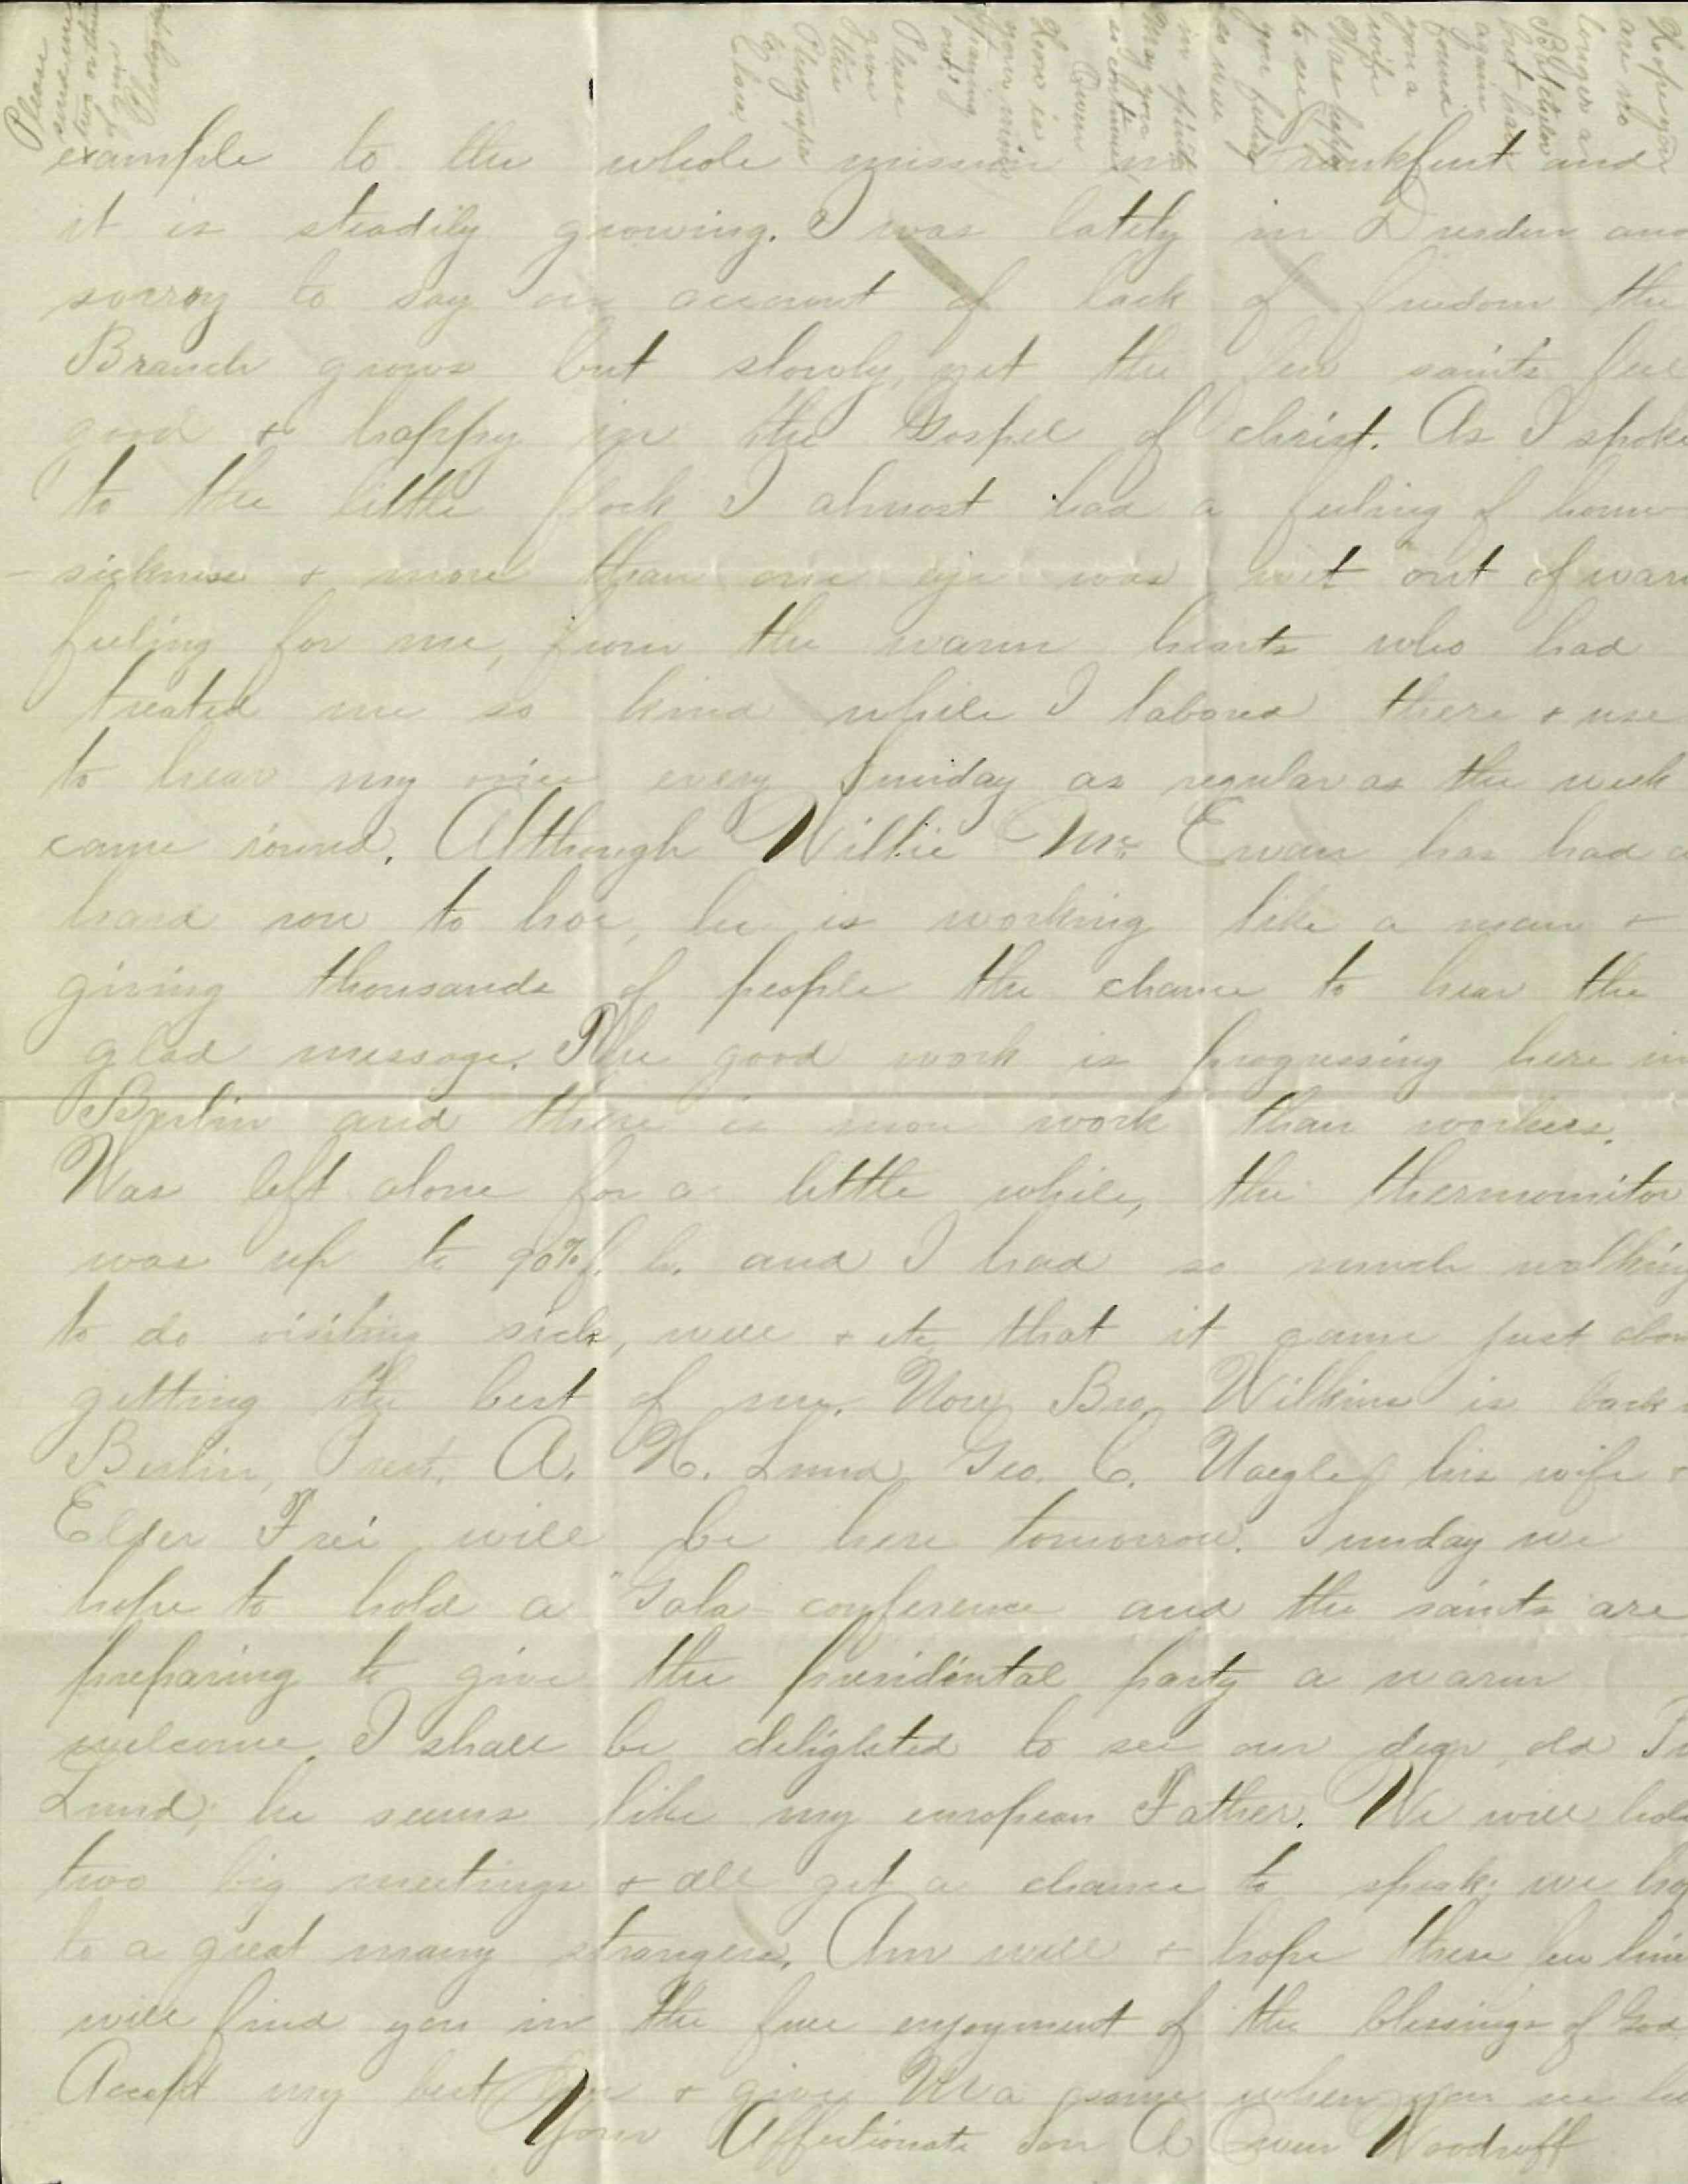 example to the whole mission in Frankfurt and
it is steadily growing. I was lately in Dresden and
sorroy to say on account of lack of freedom the
Branch grows but slowly, yet the few saints feel
good & happy in the Gospel of christ. As I spoke
to the little flock I almost had a feeling of home
sickness & more than one eye was wet out of warm
feeling for me, from the warm hearts who had
treated me so kind while I labored there & use
to hear my voice every Sunday as regular as the week
came round. Although Willie Mc Ewan has had a
hard row to hoe, he is working like a man &
giving thousands of people the chance to hear the
glad message. The good work is progressing here in
Berlin and there is more work than workers.
Was left alone for a little while, the thermomitor
was up to 90° f. h. and I had so much walking
to do visiting sick, well & etc. that it came just about
getting the best of me. Now Bro Wilkins is back
Berlin, Prest. A. H. Lund Geo. C. Naegle, his wife &
Elder Frei will be here tomorrow. Sunday we
hope to hold a "Gala conference and the saints are
preparing to give the presidental party a warm
welcome. I shall be delighted to see our dear old
Lund; he seems like my european Father. We will hold
two big meetings & all get a chance to speak we hope
to a great many strangers. Am well & hope these few lines
will find you in the full enjoyment of the blessings of God.
Accept my best love & give Ma some when you see her
Your Affectionate Son A Owen Woodruff
Hope you
are no
longer a
Batchelor
but have
again
found
you a
wife
Was happy
to see
you feeling
so well
in spirits
May you
so continue
Owen
How is
your mine
panning
out?
Please
give
the
Photographs
to Chloe
Please
send me
two or three
of your
Photographs